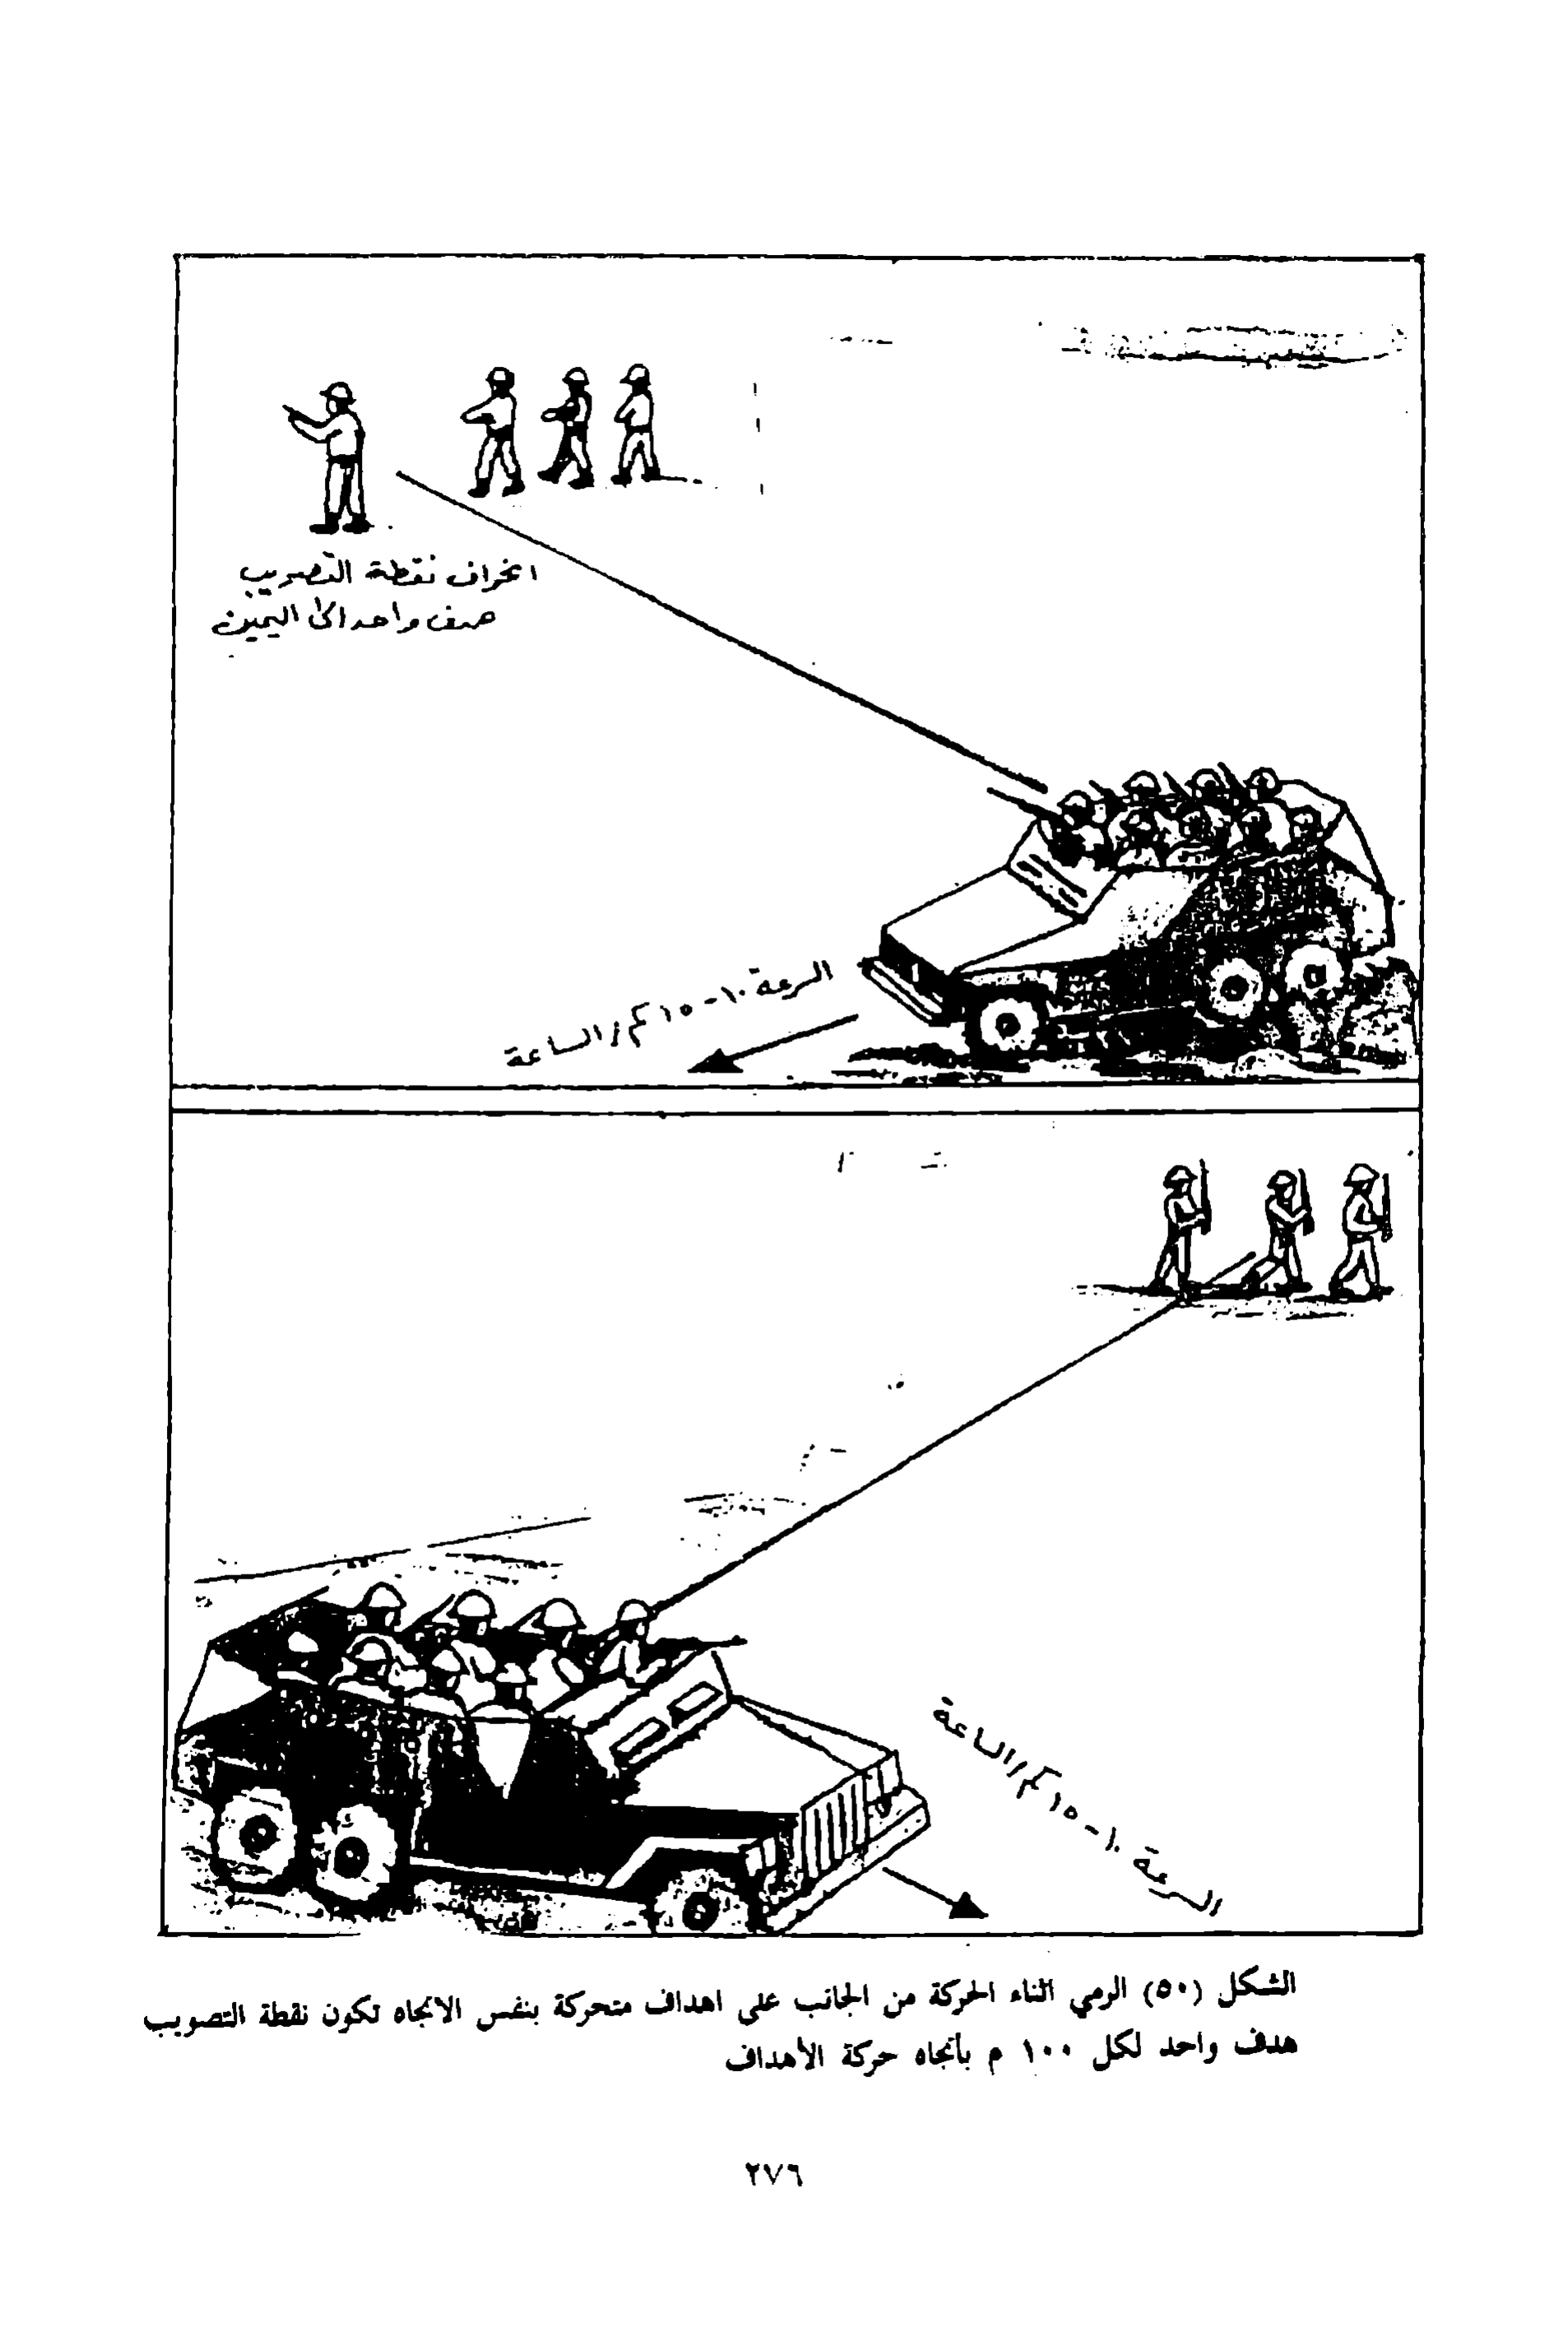 انحراف نقطة التصويب
هدف واحد الى اليمين
السرعة ١٠-١٥ كم/الساعة
السرعة ١٠-١٥ كم/الساعة
الشكل (٥٠) الرمي اثناء الحركة من الجانب على اهداف متحركة بنفس الاتجاه تكون نقطة التصويب
هدف واحد لكل ١٠٠ م بأتجاه حركة الأهداف
٢٧٦